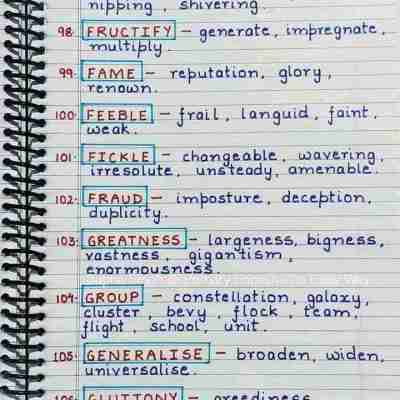 nipping, shivering.
98. FRUCTIFY - generate, impregnate,
multiply.
99. FAME - reputation, glory,
renown.
100. FEEBLE - frail, languid, faint,
weak.
101. FICKLE - changeable, wavering,
irresolute, unsteady, amenable.
102. FRAUD - imposture, deception,
duplicity.
103. GREATNESS - largeness, bigness,
vastness, gigantism,
enormousness.
104. GROUP - constellation, galaxy,
cluster, bevy, flock, team,
flight, school, unit.
105. GENERALISE - broaden, widen,
universalise.
106. GLUTTONY - greediness,